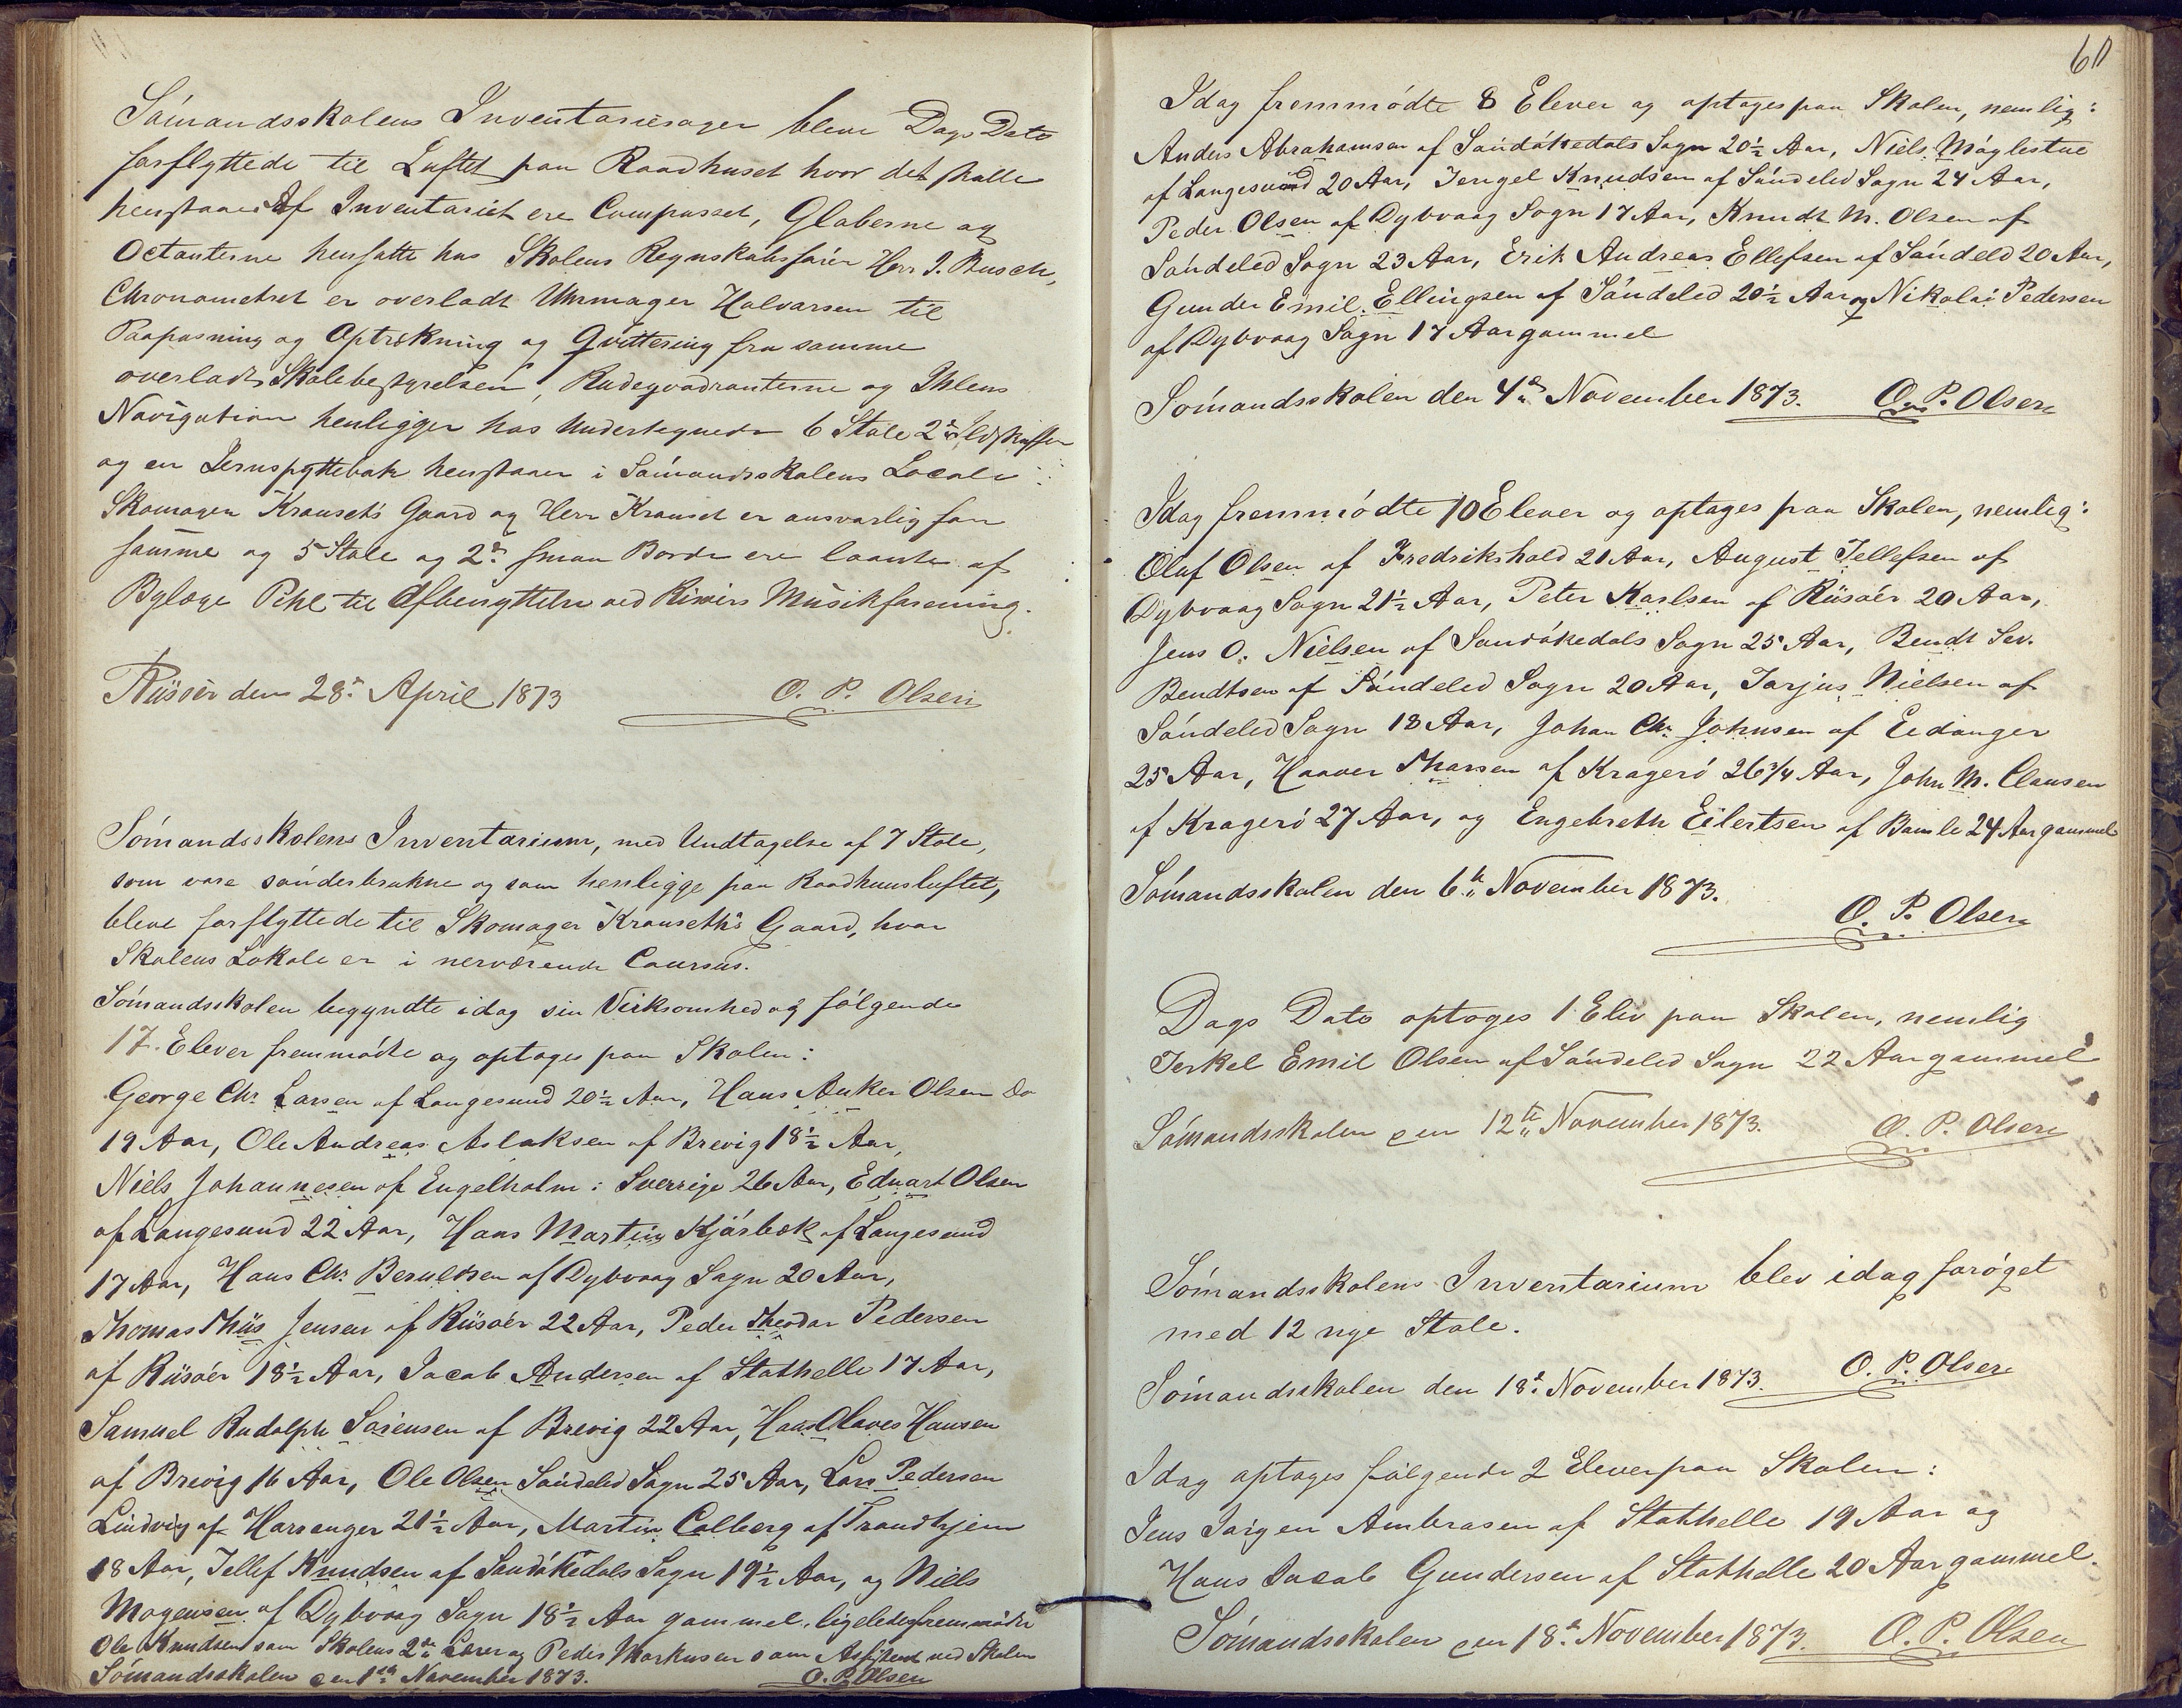 Sómandsskolens Inventariesager bleve Dags Dato
forflyttede til Loftet paa Raadhuset hvor det skulle
henstaae. Af Inventariet ere Compasset, Globerne og
Octanterne hensatte hos Skolens Regnskabsfórer Herr J. Busch,
Chronometret er overladt Uhrmager Halvorsen til
Paapasning og Optrækning og Qvittering fra samme
overladt Skolebestyrelsen, Radeqvadranterne og Ihlens
Navigation henligger hos Undertegnede 6 Stole 2de Ildskuffer
og en Jernspyttebak henstaaer i Sómandsskolens Locale i
Skomager Krauseth's Gaard og Herr Krauset er ansvarlig for
samme og 5 Stole og 2de smaa Borde ere laante af
Byfoge Pihl til Afbenyttelse ved Risóers Musikforening.
Riisóer den 28de April 1873 O. P. Olsen
Sómandsskolens Inventarium, med Undtagelse af 7 Stole,
som vare sónderbrukne og som henligge paa Raadhuusloftet,
bleve forflyttede til Skomager Krauseth's Gaard, hvor
Skolens Lokale er i nerværende Coursus.
Sómandsskolen begyndte idag sin Virksomhed og fólgende
17. Elever fremmódte og optoges paa Skolen:
George Chr. Larsen af Langesund 20½ Aar, Hans Anker Olsen do
19 Aar, Ole Andreas Aslaksen af Brevig 18½ Aar,
Niels Johannesen af Engelholm i Sverrige 26 Aar, Eduart Olsen
af Langesund 22 Aar, Hans Martin Kjórbek af Langesund
17 Aar, Hans Chr. Beruldsen af Dybvaag Sogn 20 Aar,
Thomas Thiis Jensen af Riisóer 22 Aar, Peder Theodor Pedersen
af Riisóer 18½ Aar, Jacob Andersen af Stathelle 17 Aar,
Samuel Rudolph Sórensen af Brevig 22 Aar, Hans Olaves Hansen
af Brevig 16 Aar, Ole Olsen Sóndeled Sogn 25 Aar, Lars Pedersen
Lindvig af Harranger 21½ Aar, Martin Colberg af Trondhjem
18 Aar, Tellef Knudsen af Sandókedals Sogn 19½ Aar, og Niels
Mogensen af Dybvaag Sogn 18½ Aar gammel, ligeledes fremmódte
Ole Knudsen som Skolens 2den Lærer og Peder Markusen som Assistend ved Skolen
Sómandsskolen den 1ste November 1873. O. P. Olsen
60
Idag fremmódte 8 Elever og optoges paa Skolen, nemlig:
Anders Abrahamsen af Sandókedals Sogn 20½ Aar, Niels Móglestue
af Langesund 20 Aar, Jengel Knudsen af Sóndeled Sogn 24 Aar,
Peder Olsen af Dybvaag Sogn 17 Aar, Knudt M. Olsen af
Sóndeled Sogn 23 Aar, Erik Andreas Ellefsen af Sóndeled 20 Aar,
Gunder Emil Ellingsen af Sóndeled 20½ Aar og Nikolai Pedersen
af Dybvaag Sogn 17 Aar gammel
Sómandsskolen den 4de November 1873. O. P. Olsen
Idag fremmódte 10 Elever og optoges paa Skolen, nemlig:
Olaf Olsen af Fredrikshald 21 Aar, August Tellefsen af
Dybvaag Sogn 21½ Aar, Peter Karlsen af Riisóer 20 Aar,
Jens O. Nielsen af Sandókedals Sogn 25 Aar, Bendt Sev.
Bendtsen af Sóndeled Sogn 20 Aar, Tarjus Nielsen af
Sóndeled Sogn 18 Aar, Johan Chr. Johnsen af Eidanger
25 Aar, Haaver Tharsen af Krageró 26 3/4 Aar, John M. Clausen
af Krageró 27 Aar, og Engebreth Eilertsen af Bamle 24 Aar gammel
Sómandsskolen den 6te November 1873.
O. P. Olsen
Dags Dato optoges 1 Elev paa Skolen, nemlig
Terkel Emil Olsen af Sóndeled Sogn 22 Aar gammel
Sómandsskolen den 12te November 1873. O. P. Olsen
Sómandsskolens Inventarium blev idag foróget
med 12 nye Stole.
Sómandsskolen den 18de November 1873. O. P. Olsen
Idag optoges fólgende 2 Elever paa Skolen:
Jens Jórgen Ambrosen af Stathelle 19 Aar og
Hans Jacob Gundersen af Stathelle 20 Aar gammel.
Sómandsskolen den 18de November 1873. O. P. Olsen